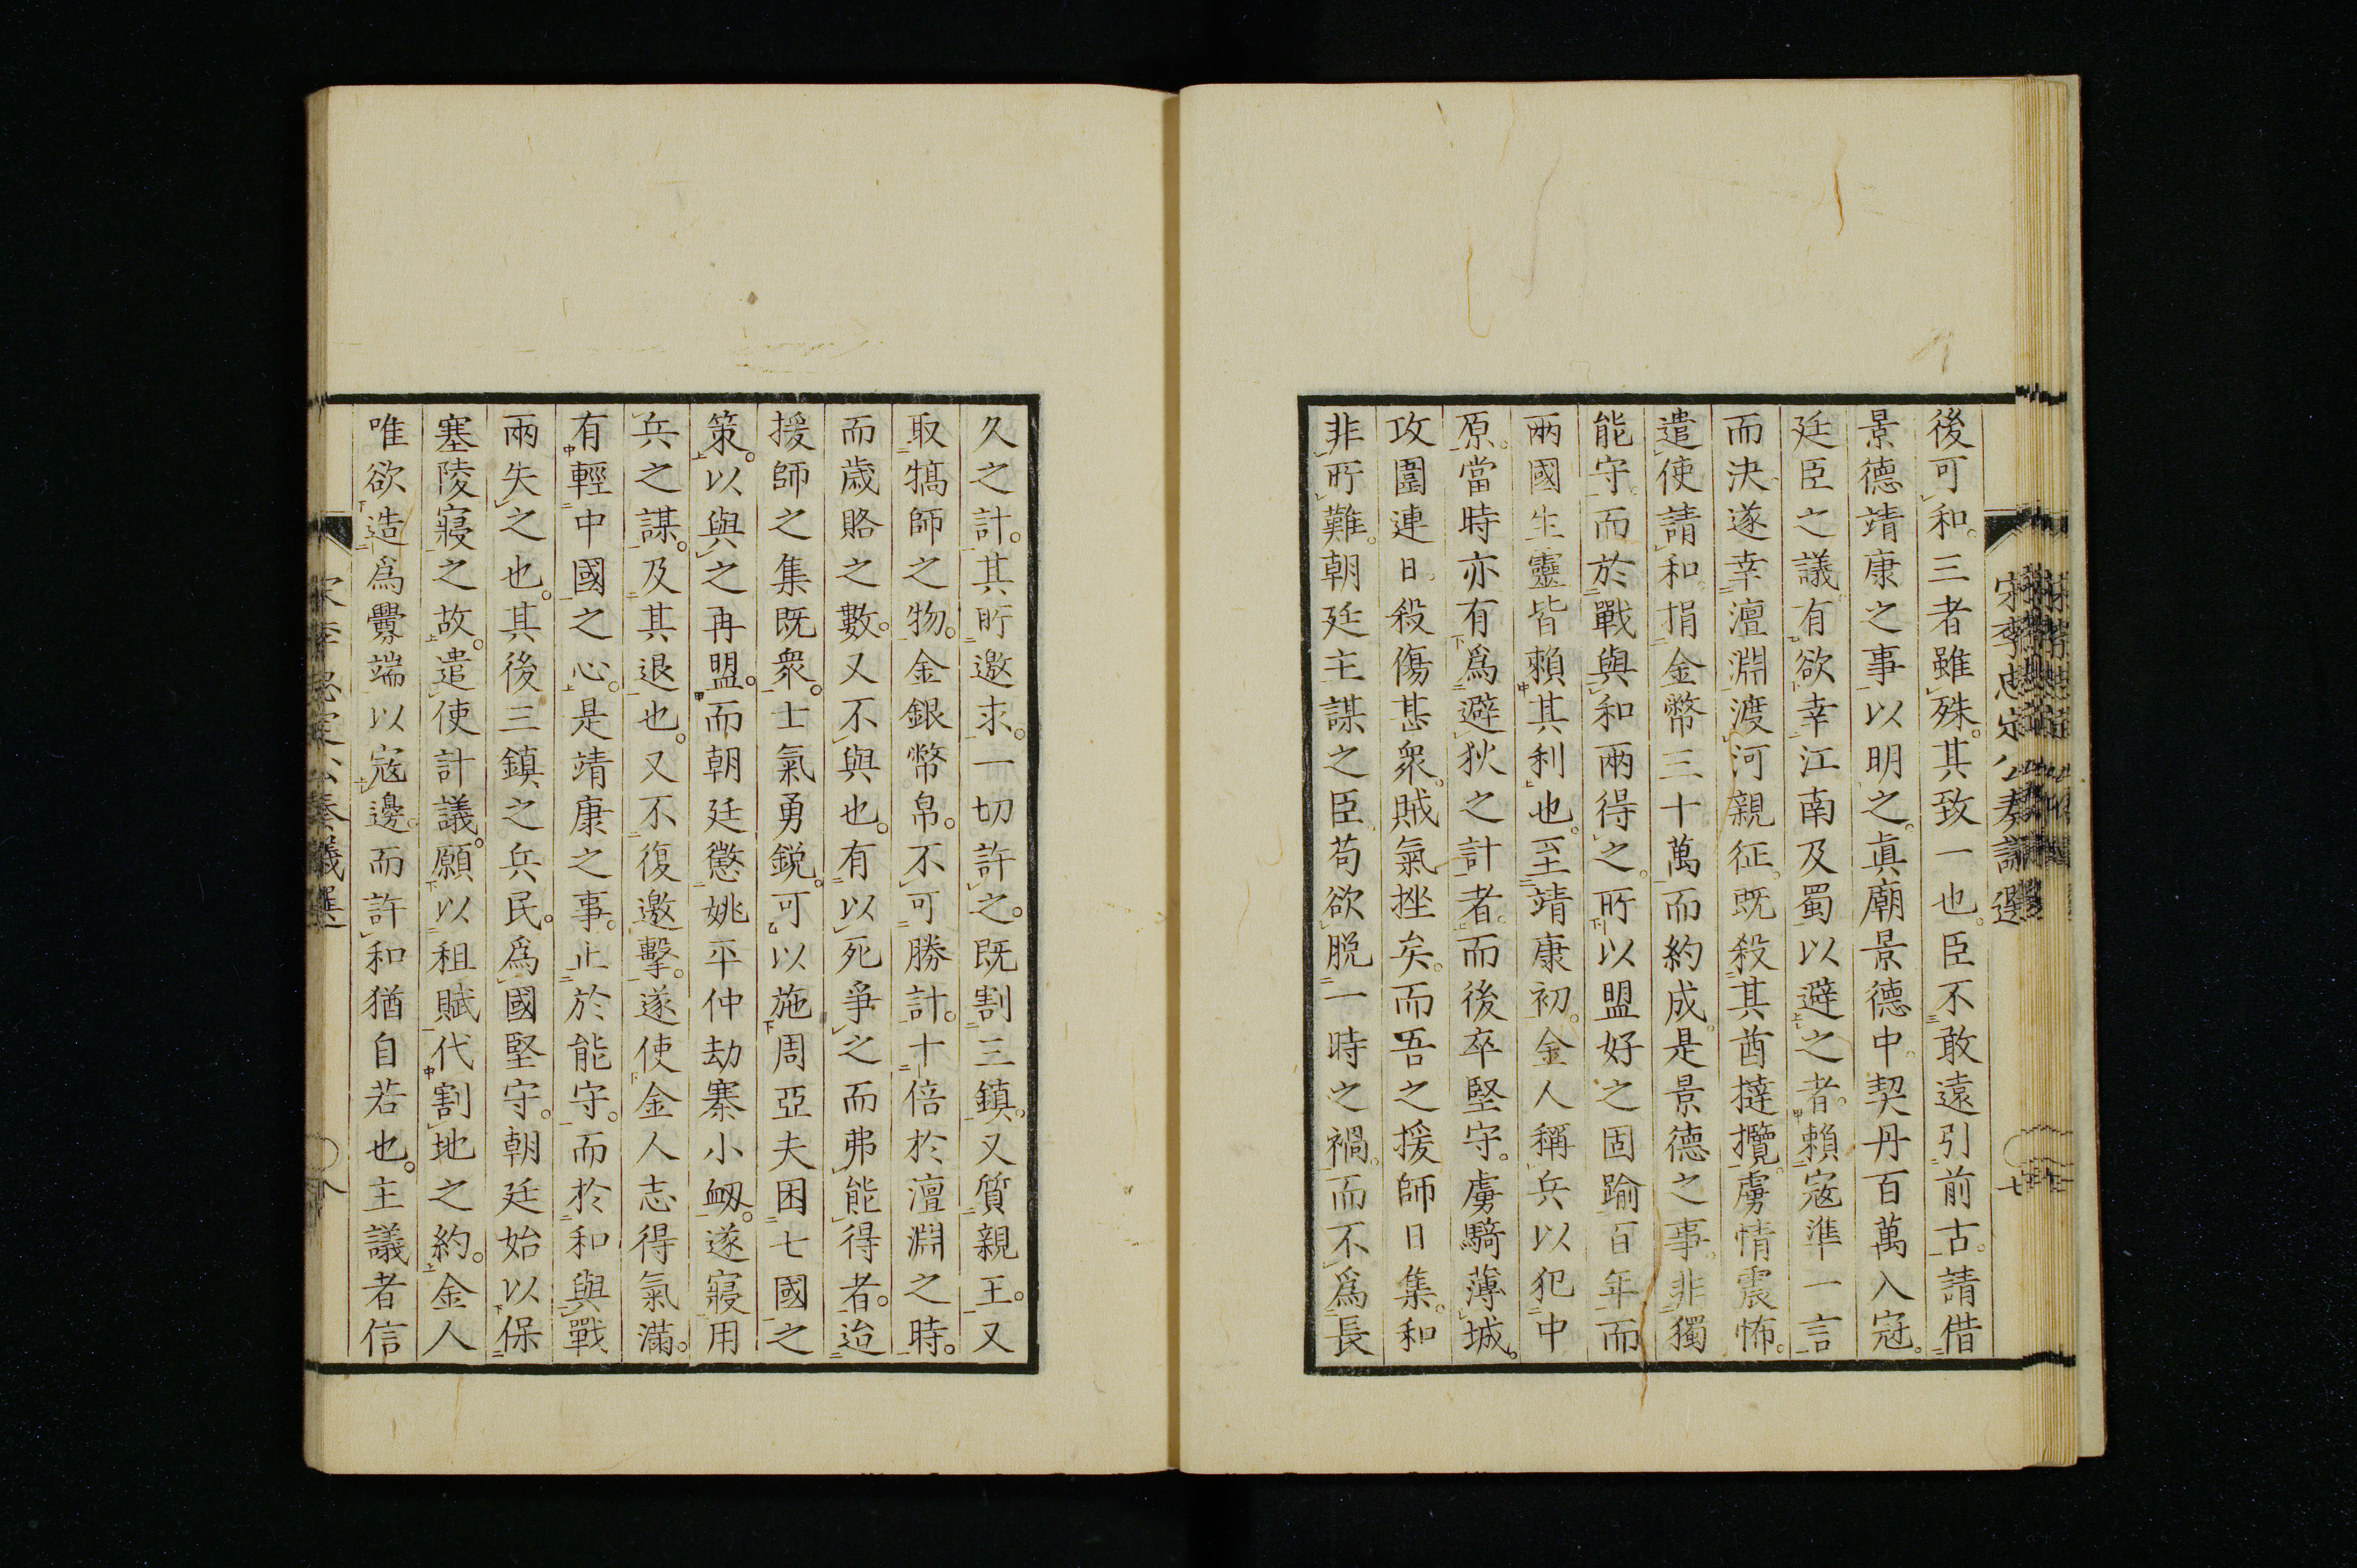 宋李忠定公奏議選
七
後可和。三者雖殊。其致一也。臣不敢遠引前古。請借
景德靖康之事以明之。眞廟景德中。契丹百萬入寇。
廷臣之議。有欲幸江南及蜀以避之者。賴寇準一言
而決。遂幸澶淵渡河親征。既殺其酋撻攬。虜情震怖。
遣使請和。捐金幣三十萬而約成。是景德之事。非獨
能守。而於戰與和兩得之。所以盟好之固踰百年。而
兩國生靈皆賴其利也。至靖康初。金人稱兵以犯中
原。當時亦有爲避狄之計者。而後卒堅守。虜騎薄城。
攻圍連日。殺傷甚衆。賊氣挫矣。而吾之援師日集。和
非所難。朝廷主謀之臣。苟欲脱一時之禍。而不爲長
久之計。其所邀求。一切許之。既割三鎮。又質親王。又
取犒師之物。金銀幣帛。不可勝計。十倍於澶淵之時。
而歲賂之數。又不與也。有以死爭之而弗能得者。迨
援師之集既衆。士氣勇鋭。可以施周亞夫困七國之
策。以與之再盟。而朝廷懲姚平仲劫寨小衂。遂寢用
兵之謀。及其退也。又不復邀擊。遂使金人志得氣滿。
有輕中國之心。是靖康之事。止於能守。而於和與戰
兩失之也。其後三鎮之兵民。爲國堅守。朝廷始以保
塞陵寢之故。遣使計議。願以租賦代割地之約。金人
唯欲造爲釁端以寇邊。而許和猶自若也。主議者信
宋李忠定公奏議選
八